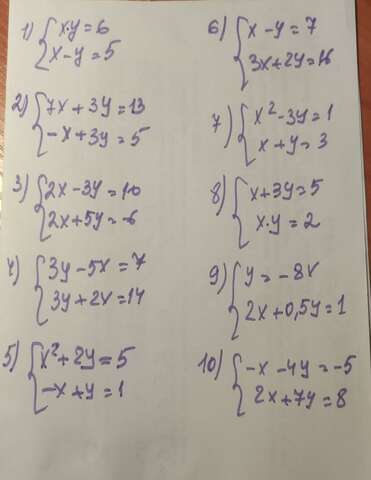 1) { x·y = 6
x - y = 5
2) { 7x + 3y = 13
-x + 3y = 5
3) { 2x - 3y = 10
2x + 5y = -6
4) { 3y - 5x = 7
3y + 2x = 14
5) { x² + 2y = 5
-x + y = 1
6) { x - y = 7
3x + 2y = 16
7) { x² - 3y = 1
x + y = 3
8) { x + 3y = 5
x·y = 2
9) { y = -8x
2x + 0,5y = 1
10) { -x - 4y = -5
2x + 7y = 8